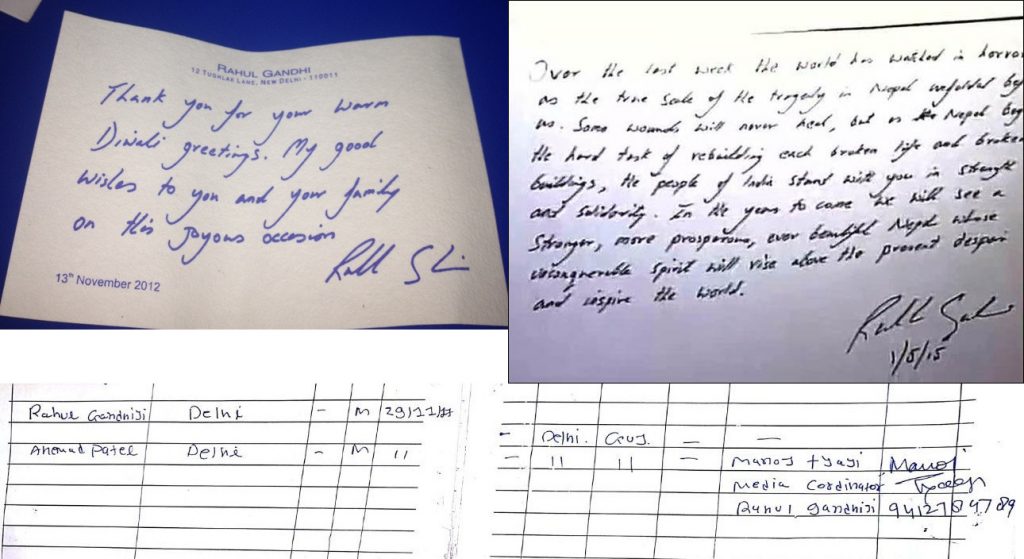 RAHUL GANDHI
12 TUGHLAK LANE, NEW DELHI - 110011
Thank you for your warm
Diwali greetings. My good
wishes to you and your family
on this joyous occasion
13th November 2012
Over the last week the world has watched in horror
as the true scale of the tragedy in Nepal unfolded bef
us. Some wounds will never heal, but as the Nepal beg
the hard task of rebuilding each broken life and broken
buildings, the people of India stand with you in strength
and solidarity. In the years to come we will see a
stronger, more prosperous, ever beautiful Nepal whose
unconquerable spirit will rise above the present despair
and inspire the world.
1/5/15
Rahul Gandhiji Delhi - M 29/11/17
Ahemad Patel Delhi - M 11
- Delhi. Guj. - -
- 11 11 - Manoj Tyagi Manoj
Media Cordinator Tyagi
Rahul gandhiji